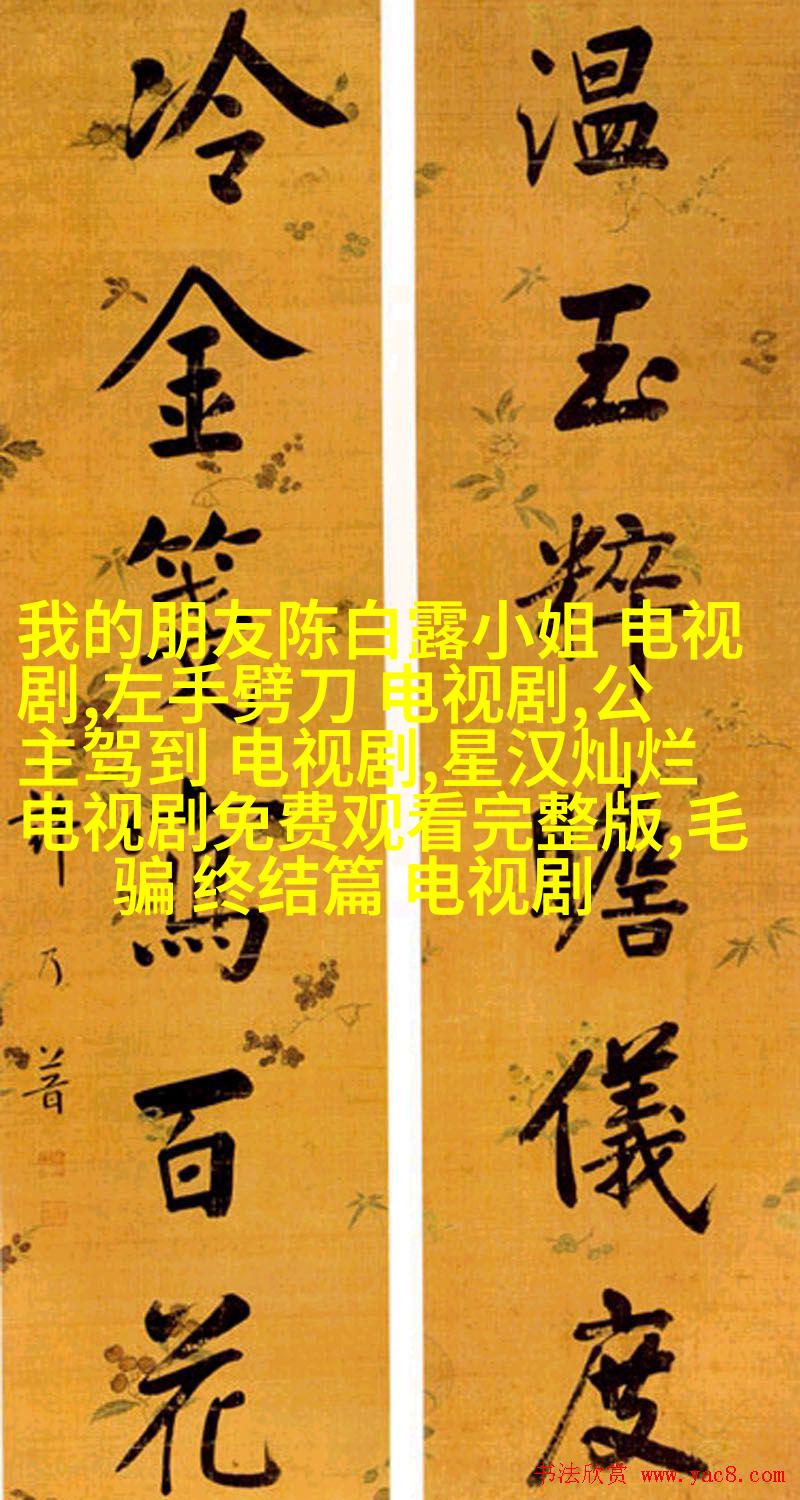 温玉粹瞻儀度
冷金箋寫百花
許乃普
我的朋友陈白露小姐 电视
剧,左手劈刀 电视剧,公
主驾到 电视剧,星汉灿烂
电视剧免费观看完整版,毛
骗 终结篇 电视剧
书法欣赏 www.yac8.com